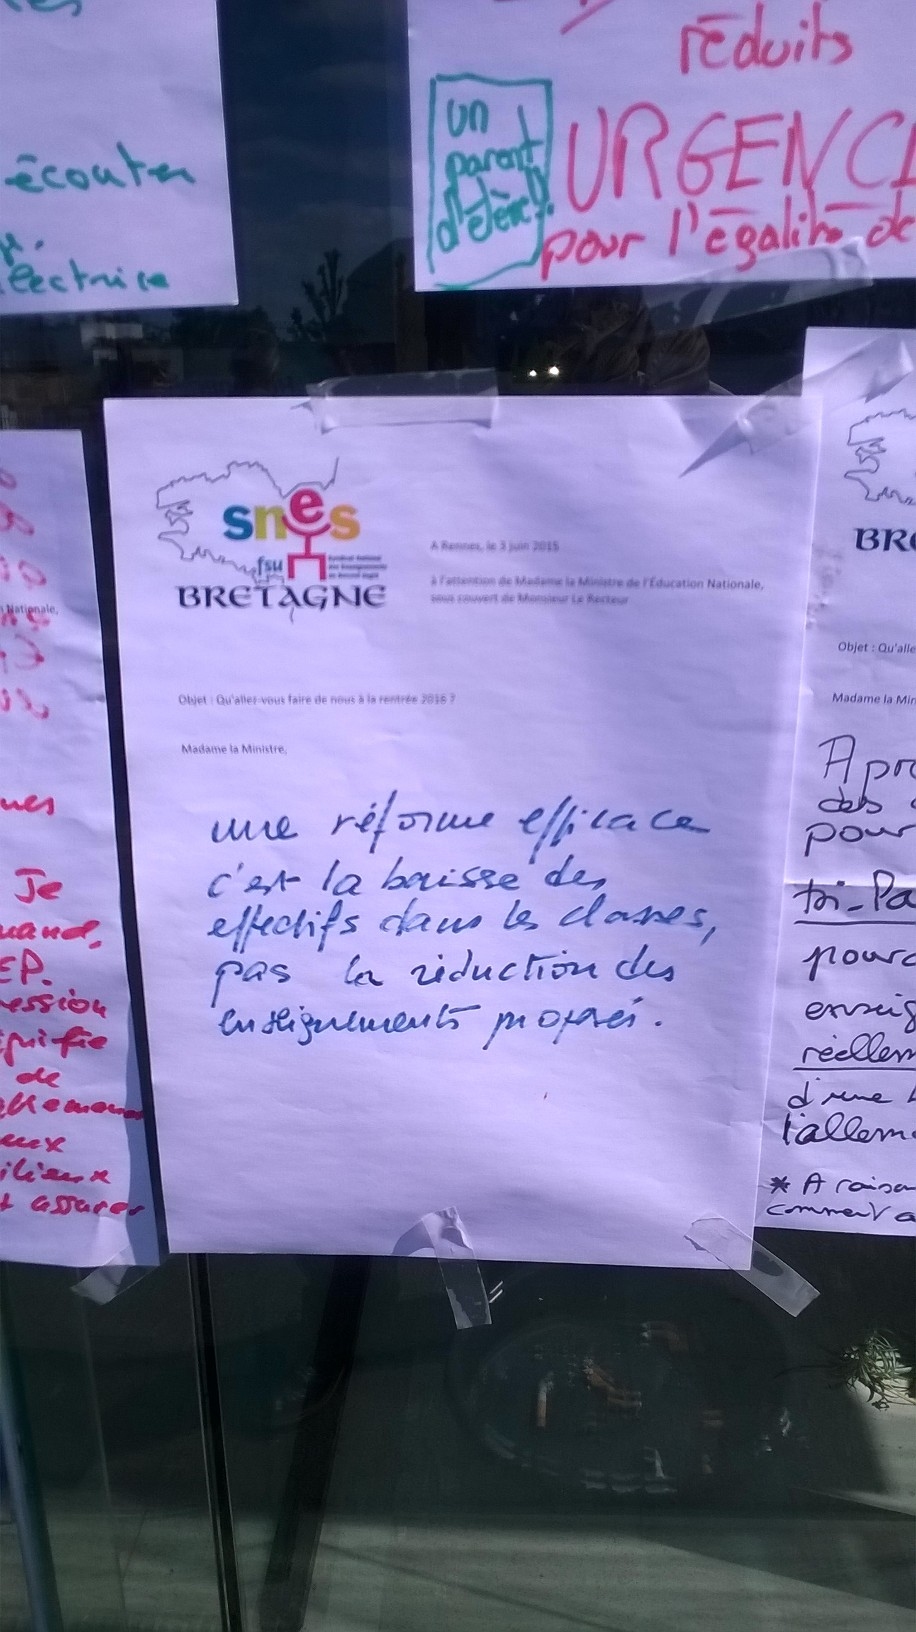 écouter
électrice
réduits
un
parent
d'élève
URGENCE
pour l'égalité de
snes
fsu
BRETAGNE
A Rennes, le 3 juin 2015
à l'attention de Madame la Ministre de l'Éducation Nationale,
sous couvert de Monsieur Le Recteur
Objet : Qu'allez-vous faire de nous à la rentrée 2016 ?
Madame la Ministre,
une réforme efficace
c'est la baisse des
effectifs dans les classes,
pas la réduction des
enseignements proposés.
Nationale,
Je
EP.
de
assurer
BRE
Objet : Qu'alle
Madame la Min
A pro
des
pour
tri-Pa
pourc
enseig
réellem
d'une
l'allem
* A raiso
comment a